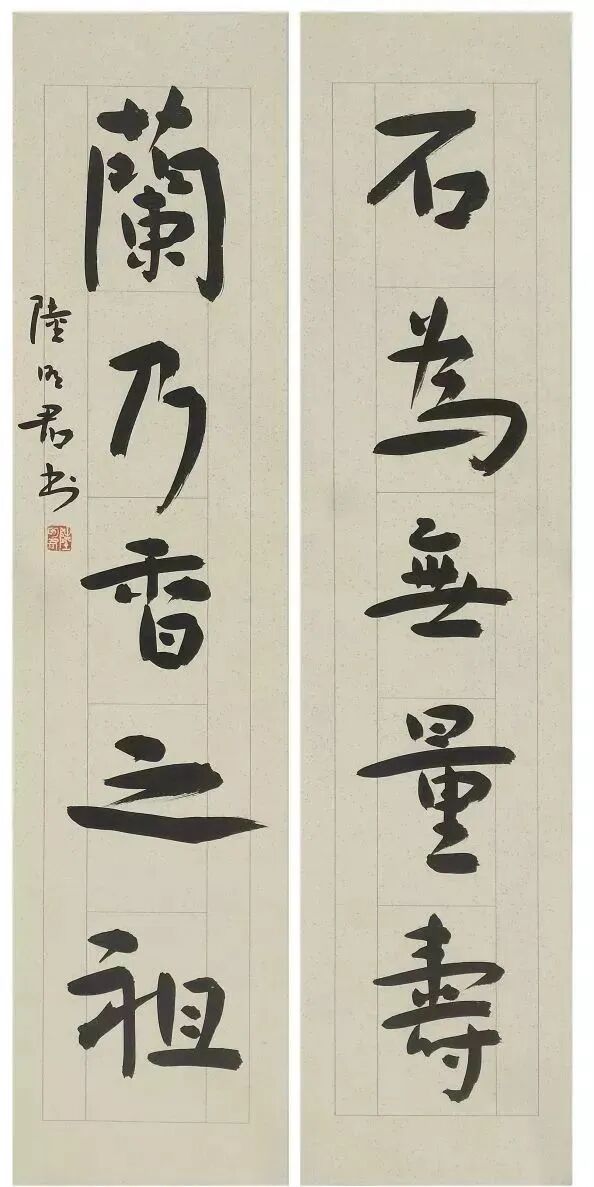 石為無量壽
蘭乃香之祖
陸明君書